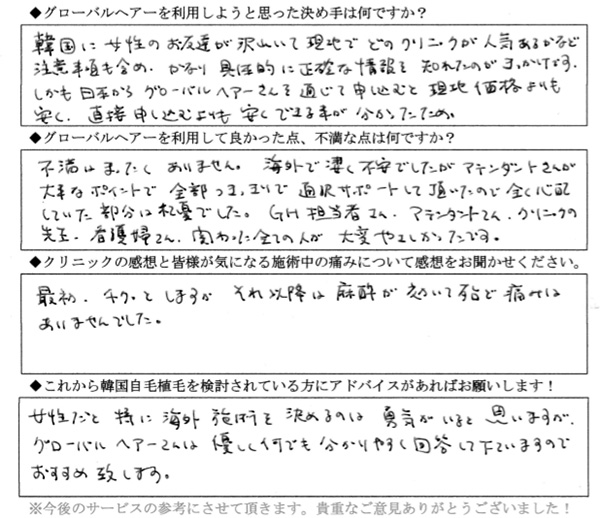 ◆グローバルヘアーを利用しようと思った決め手は何ですか？
韓国に女性のお友達が沢山いて現地でどのクリニックが人気あるかなど
注意事項も含め、かなり具体的に正確な情報を知れたのがきっかけです。
しかも日本からグローバルヘアーさんを通じて申し込むと現地価格よりも
安く、直接申し込むよりも安くできる事が分かったため。
◆グローバルヘアーを利用して良かった点、不満な点は何ですか？
不満はまったくありません。海外で凄く不安でしたがアテンダントさんが
大事なポイントで全部つきっきりで通訳サポートして頂いたので全く心配
していた部分は杞憂でした。GH担当者さん、アテンダントさん、クリニックの
先生、看護婦さん、関わった全ての人が大変やさしかったです。
◆クリニックの感想と皆様が気になる施術中の痛みについて感想をお聞かせください。
最初、チクっとしますがそれ以降は麻酔が効いて殆ど痛みは
ありませんでした。
◆これから韓国自毛植毛を検討されている方にアドバイスがあればお願いします！
女性だと特に海外施術を決めるのは勇気がいると思いますが、
グローバルヘアーさんは優しく何でも分かりやすく回答して下さいますので
おすすめ致します。
※今後のサービスの参考にさせて頂きます。貴重なご意見ありがとうございました！